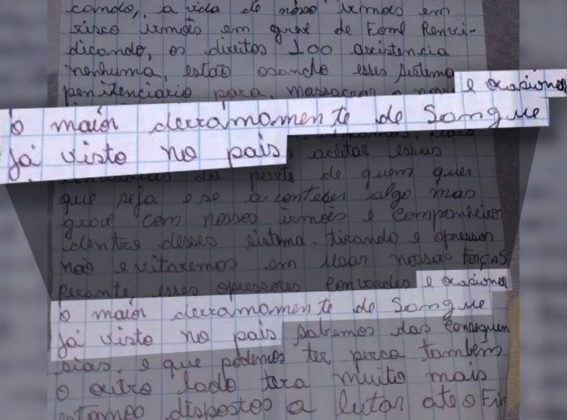 cando, a vida de nosso irmões em
risco irmões em greve de Fome Renvi-
dicando, os direitos 100 asistencia
nenhuma, estão osando esses sistema
penitenciario para massacrar o
e ocasionar
o maior derramamente de Sangue
já visto no pais
aceitar essas
da parte de quem quer
que seja e se a conteser algo mas
grave com nossos irmões e companheiros
dentro desses sistema. tirando e opressor
não evitaremos em usar nossas forças
perante esses opresores e ocasionar
o maior derramamente de Sangue
já visto no pais sabemos das consequen
sias, e que podemos ter perca também
o outro lado tera muito mais
estamos dispostos a lutar até o Fim